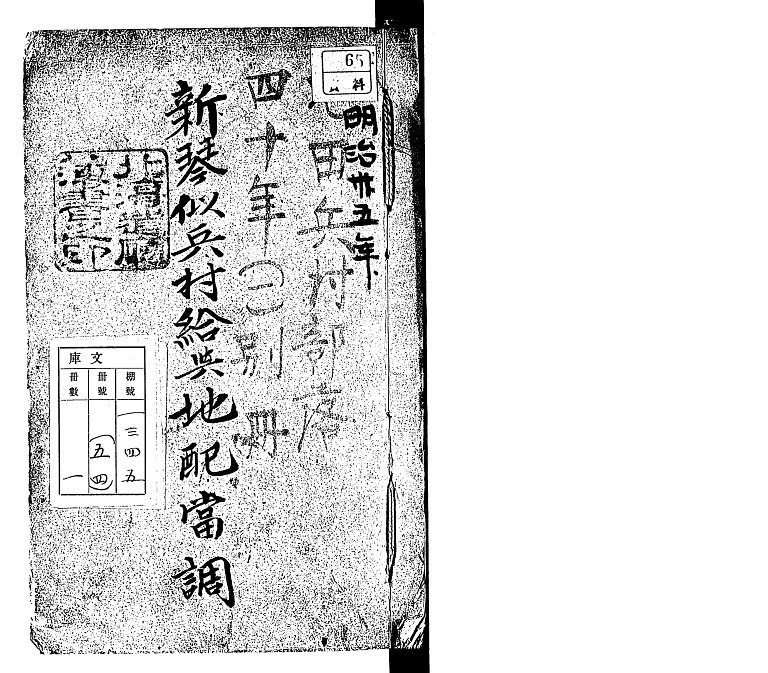 明治卅五年
田兵村部落
四十年㊂別冊
新琴似兵村給与地配當調
文庫
棚號 三四五
冊號 五(四)
冊數 一